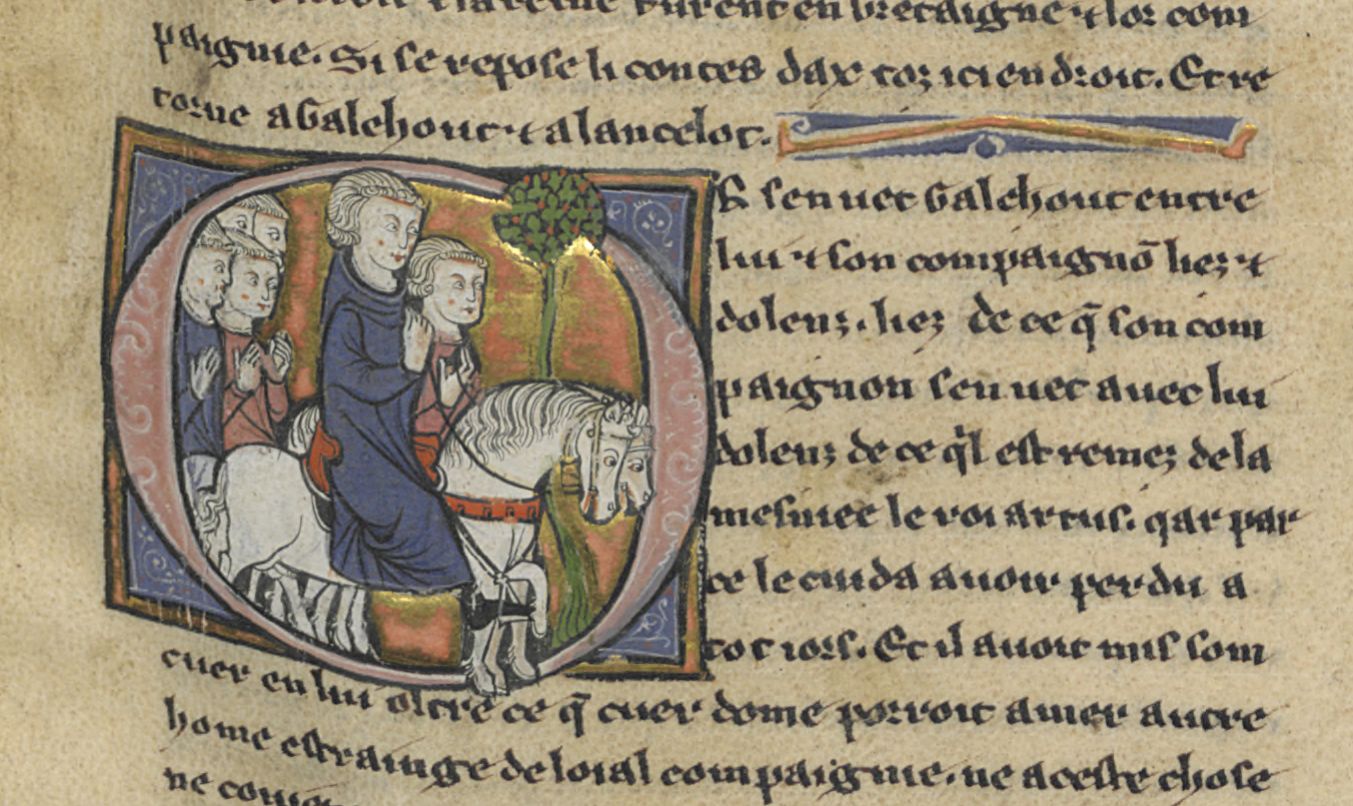 paignie. Si se repose li contes dax toz ici en droit. Et re
torne a Galehout ⁊ a lancelot.
sen uet Galehout entre
lui ⁊ son compaignō liez ⁊
dolenz. liez de ce q̄ son com
paignon sen uet auec lui
dolenz de ce ql̄ est remez de la
mesniee le roi artus. qar par
ce le cuida auoir perdu a
toz iors. Et il auoit mis som
cuer en lui oltre ce q̄ cuer dome porroit amer autre
home estrainge de loial compaignie. ne a ceste chose